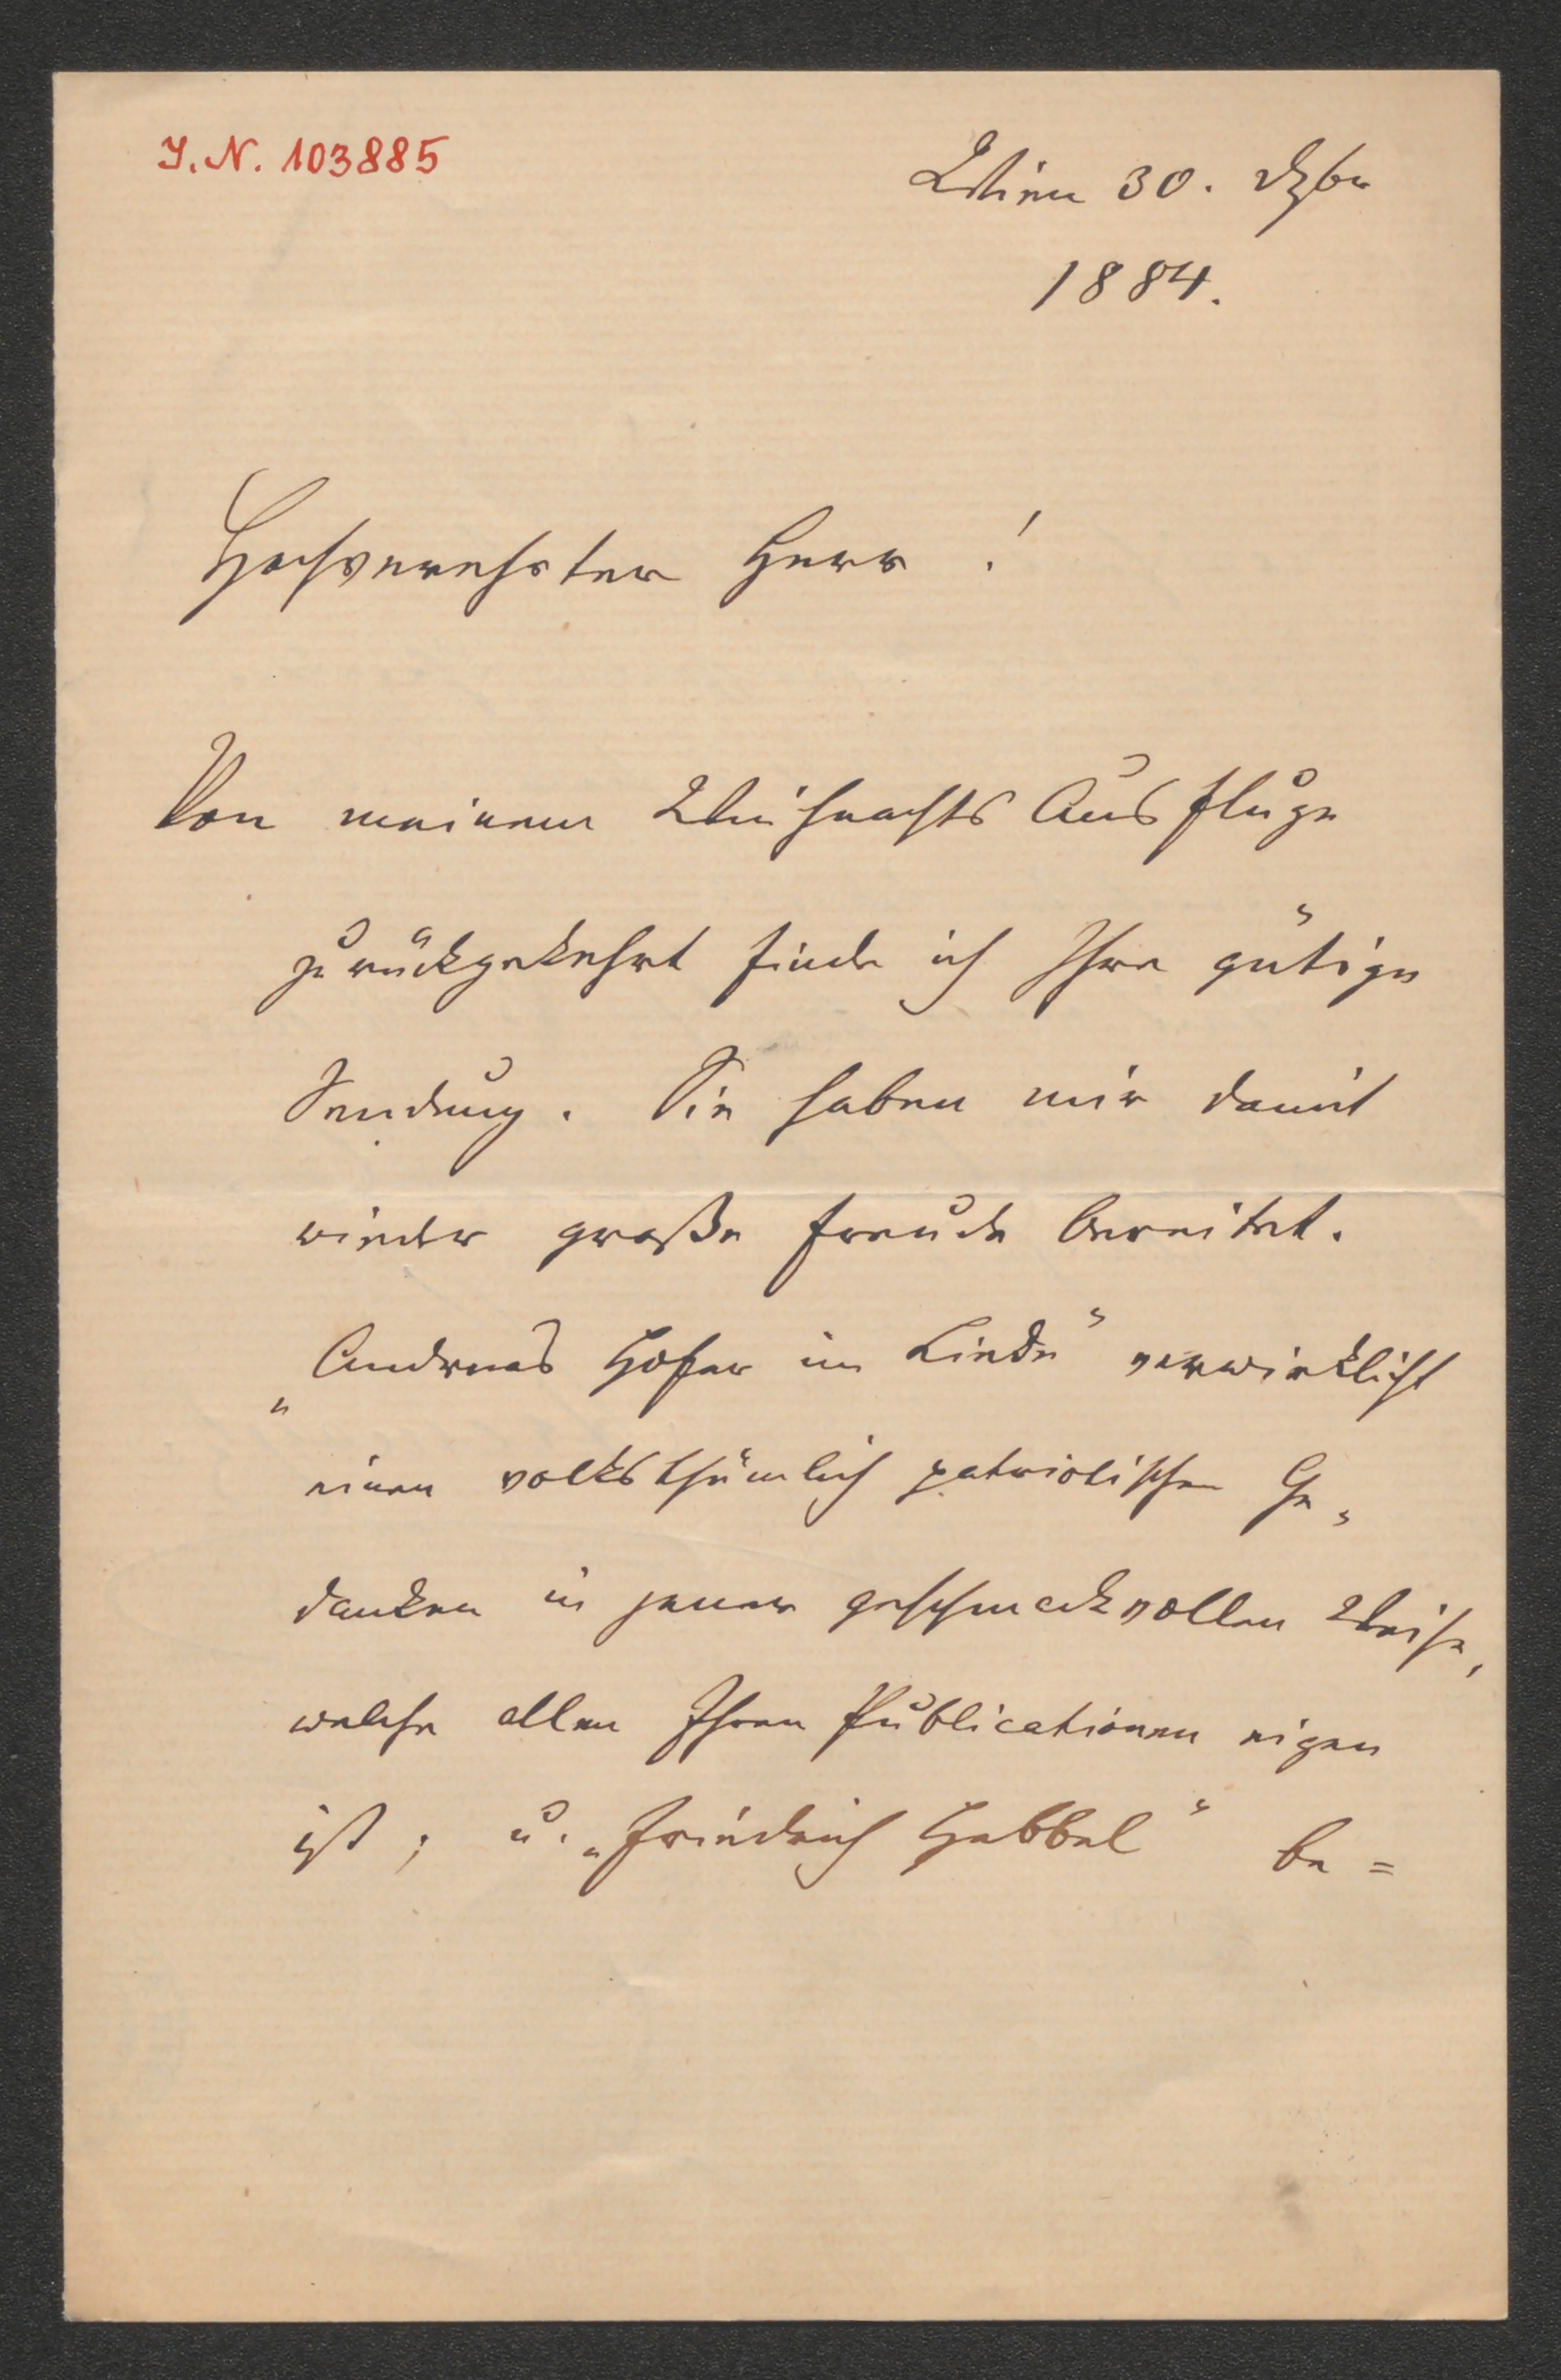 I. N. 103885
Wien 30. Dzbr
1884.
Hochverehrter Herr!
Von meinem Weihnachts Ausfluge
zurückgekehrt finde ich Ihre gütige
Sendung. Sie haben mir damit
wieder große Freude bereitet.
„Andreas Hofer im Liede“ verwirklicht
einen volksthümlich patriotischen Ge-
danken in jener geschmackvollen Weise,
welche allen Ihren Publicationen eigen
ist; u. „Friedrich Hebbel“ be=